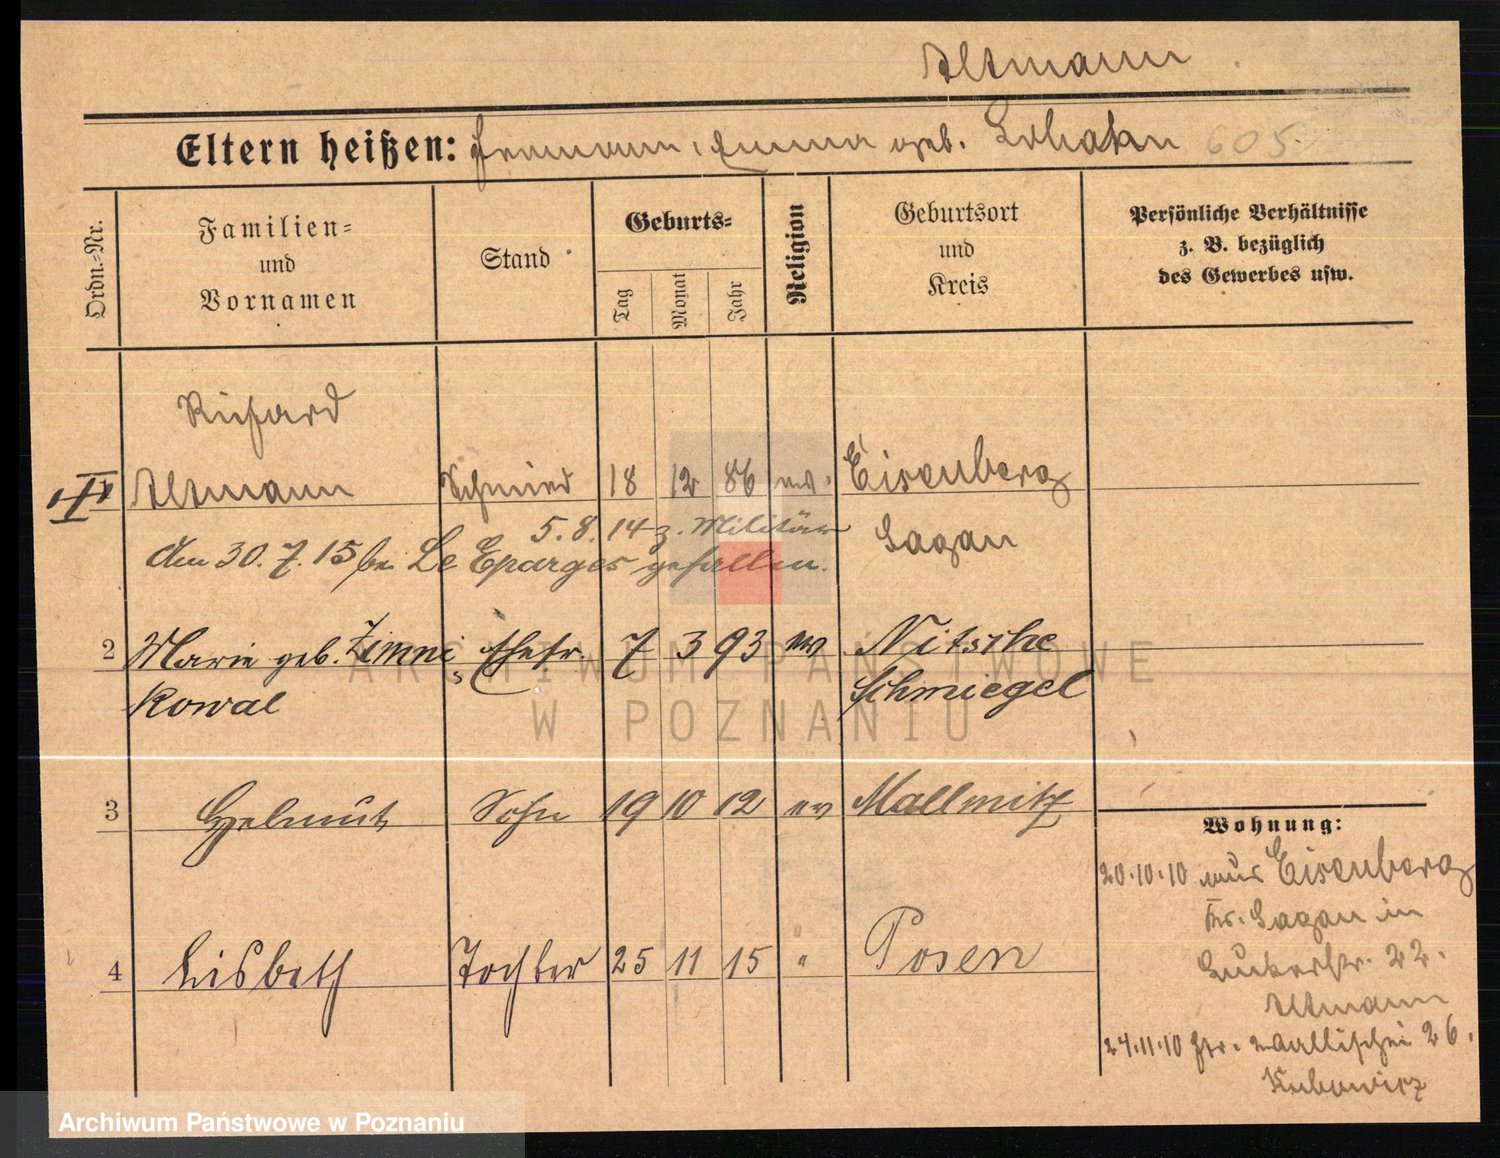 Altmann
Eltern heißen: Hermann, Emma geb. 605.
Ordn.-Nr.
Familien- und Vornamen
Stand
Geburts-
Tag
Monat
Jahr
Religion
Geburtsort und Kreis
Persönliche Verhältnisse z. B. bezüglich des Gewerbes usw.
Richard
Altmann Schmied 18 12 86 ev. Eisenberg
5.8.14 z. Militär Sagan
Am 30.7.15 bei Le Eparges gefallen.
2 Marie geb. Zimni, Ehefr. 7 3 93 ev Nitsche
Kowal Schmiegel
3 Helmut Sohn 19 10 12 ev Mallmitz
4 Lisbeth Tochter 25 11 15 " Posen
Wohnung:
20.10.10 aus Eisenberg
Kr. Sagan in
22.
Altmann
24.11.10 Gr. 26.
ARCHIWUM PAŃSTWOWE
W POZNANIU
Archiwum Państwowe w Poznaniu